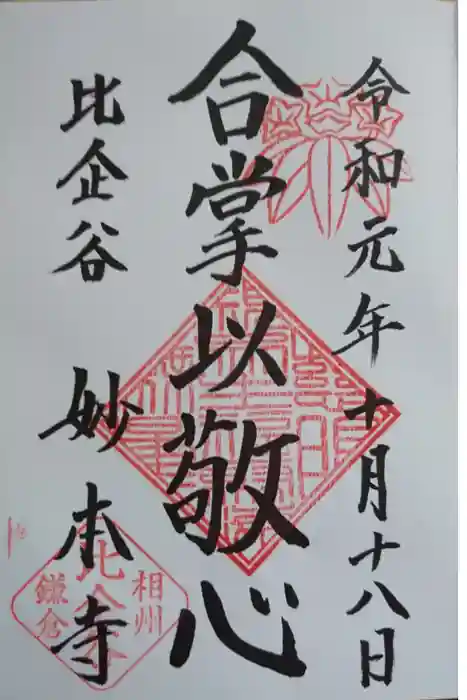 令和元年十月十八日
合掌以敬心
比企谷 妙本寺
相州
鎌倉